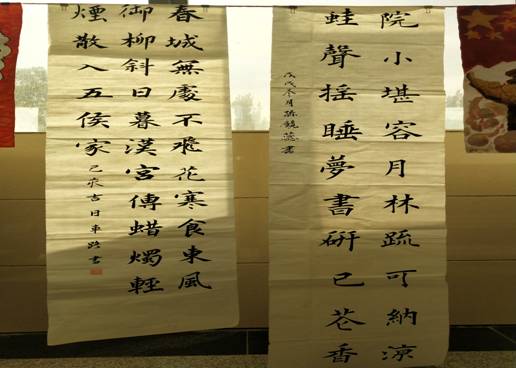 院小堪容月林疏可納涼
蛙聲搖睡夢書研已苍香
戊戌冬月孫鏡
書
春城無處不飛花寒食東風
御柳斜日暮漢宮傳蜡燭輕
煙散入五侯家
己亥吉日車路書